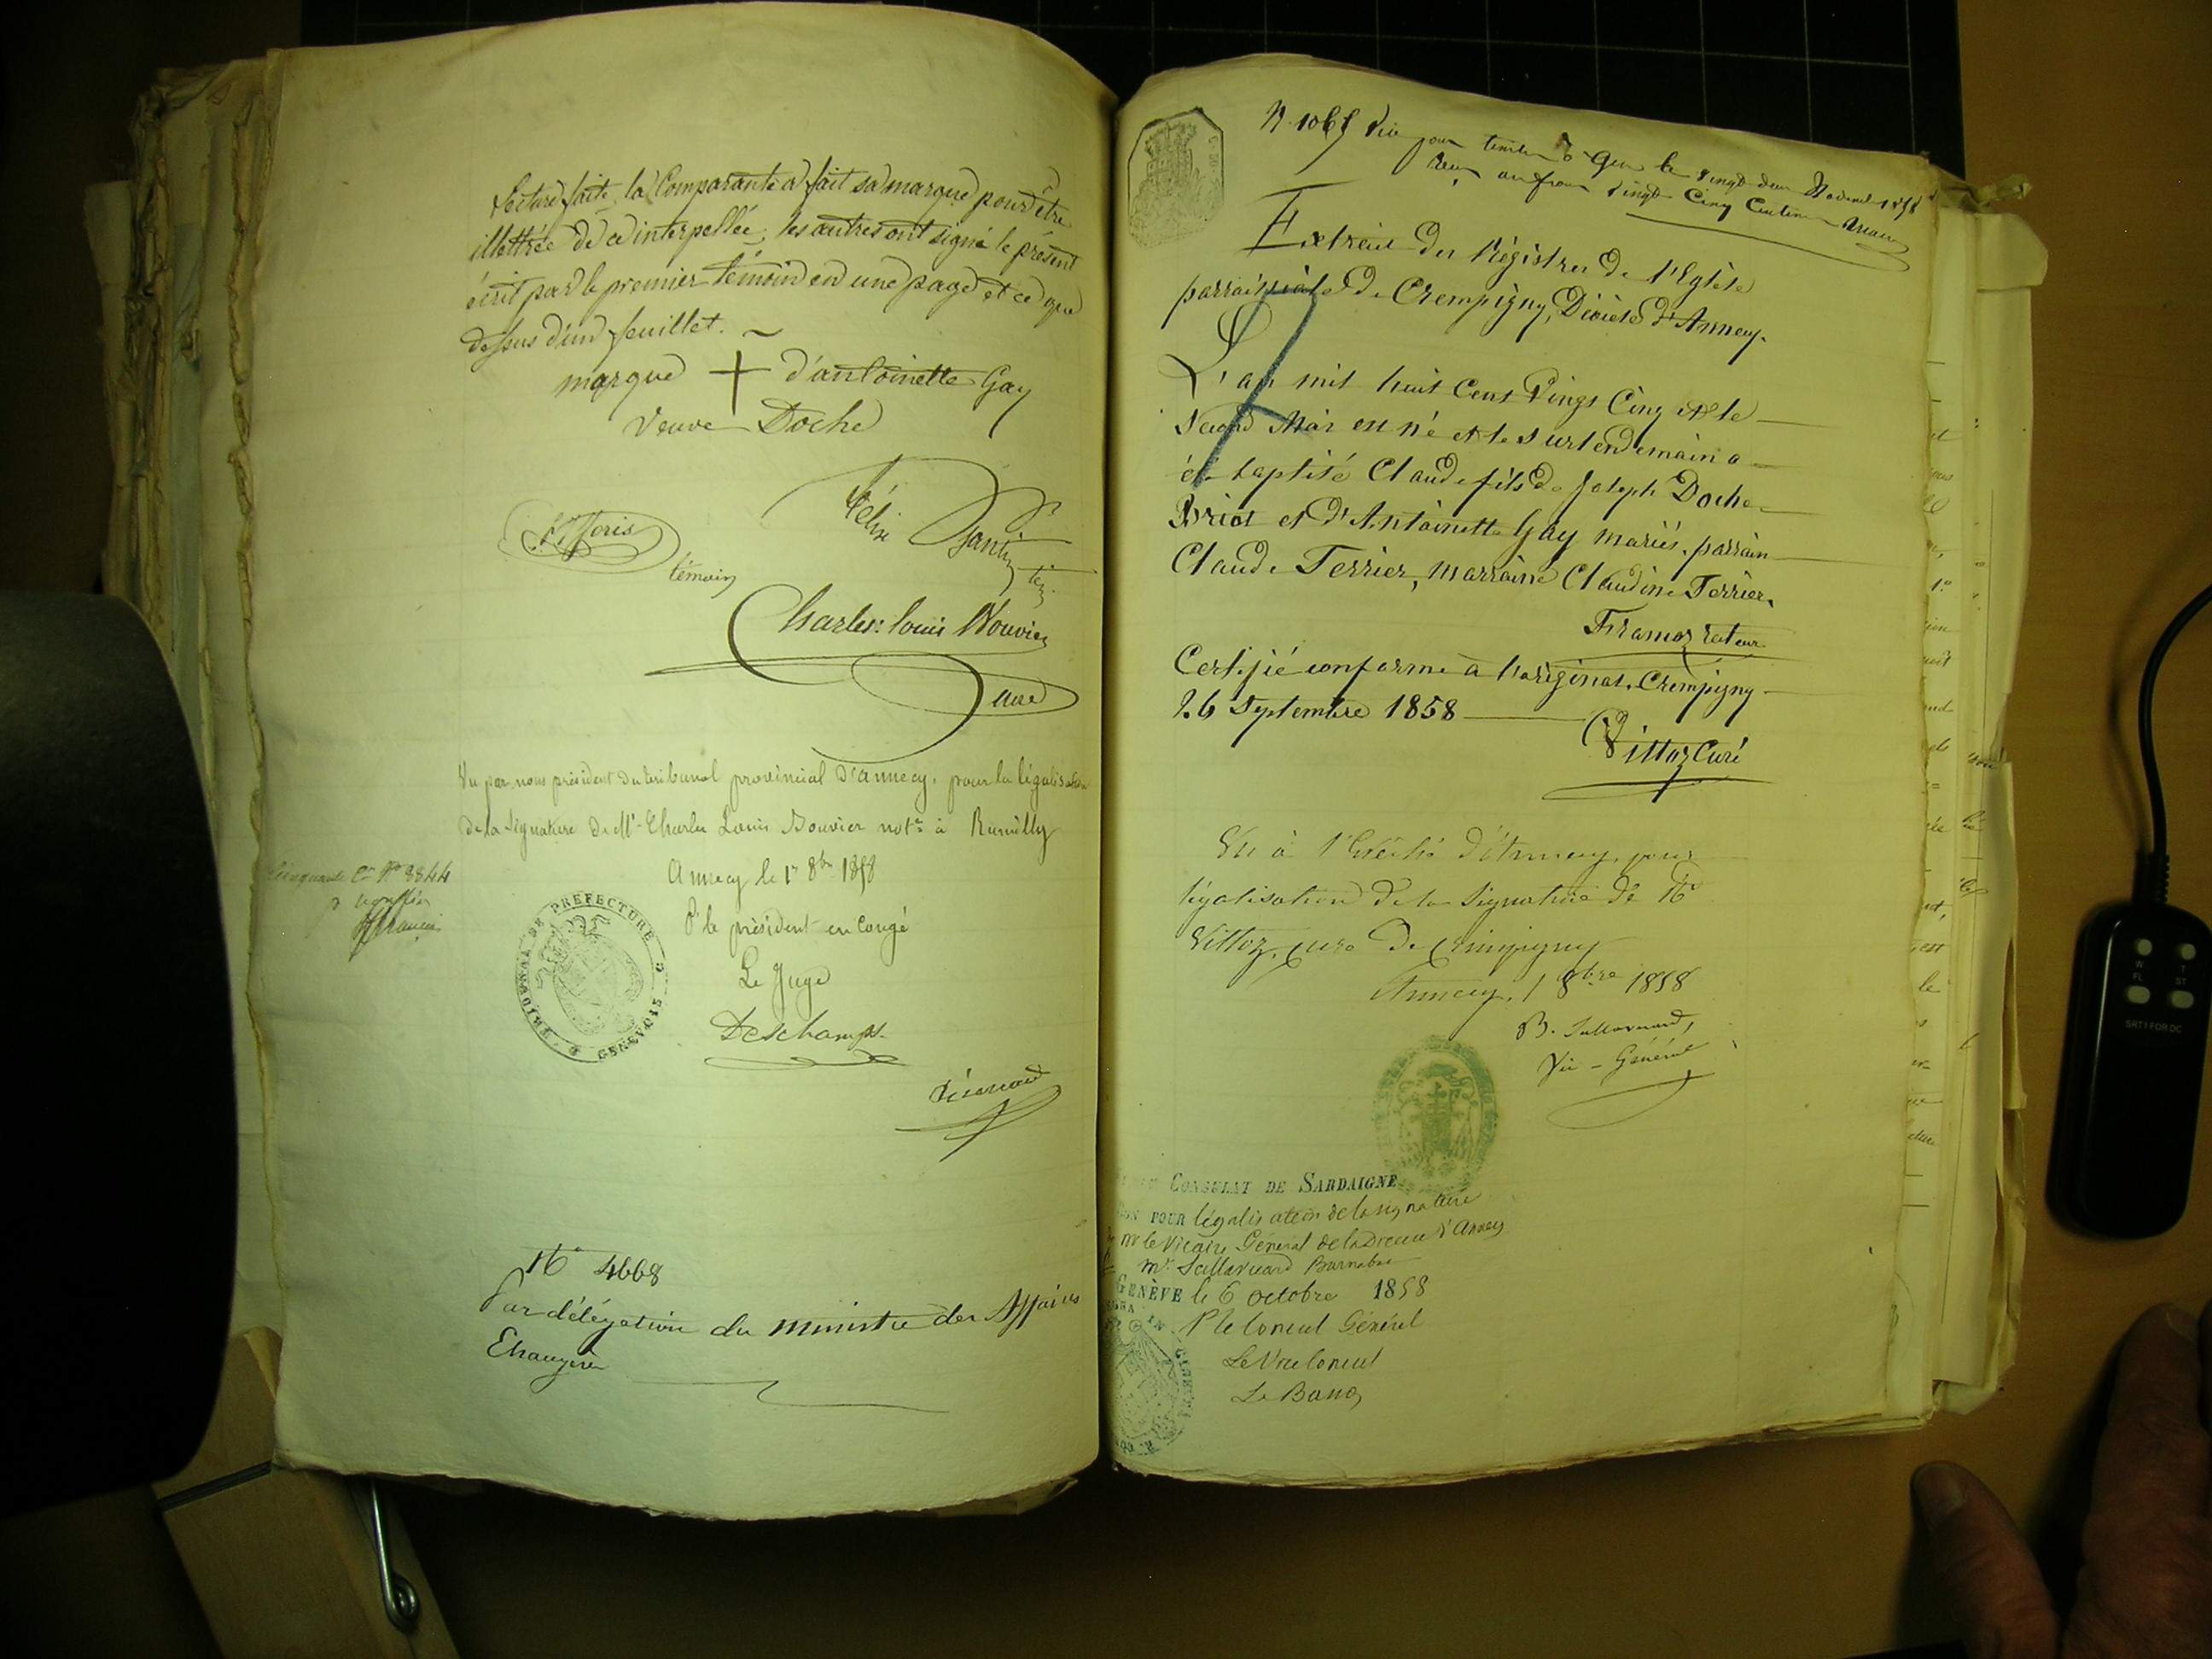 Lecture faite, la Comparante a fait sa marque pour être
illettrée de ce interpellée; les autres ont signé le présent
écrit par le premier témoin en une page et ce que
dessus d'un feuillet.
marque + d'antoinette Gay
veuve Doche
témoin
Félix
Charles: louis Bouvier
Vu par nous président du tribunal provincial d'annecy, pour la légalisation
de la signature de Mr Charles Louis Bouvier notre à Rumilly
Annecy le 1r 8bre 1858
Cinquante Cs No 3844
TRIBUNAL DE PREFECTURE
GENEVOIS
Pr le président en congé
Le Juge
Deschamps
No 4668
Par délégation du ministre des Affaires
Etrangères
Vu pour timbre à Gex le vingt deux 1858
Reçu un franc vingt Cinq Centimes
Extrait des Régistres de l'Eglise
parroissiale de Crempigny, Diocèse d'Annecy.
L'an mil huit Cent Vingt Cinq et le
second Mars est né et le surlendemain a
été baptisé Claude fils de Joseph Doche
et d'Antoinette Gay mariés, parrain
Claude Terrier, marraine Claudine Terrier.
Framoz recteur
Certifié conforme à l'original, Crempigny
26 Septembre 1858
Vittoz Curé
Vu à l'Evêché d'Annecy, pour
légalisation de la signature de Rd
Vittoz, curé de Crempigny
Annecy, 1 8bre 1858
B.
Vic - Général
CONSULAT DE SARDAIGNE
POUR légalisation de la signature
de mr le Vicaire Général de la Diocese d'Annecy
GENÈVE le 6 octobre 1858
P le Consul Général
Le Vice Consul